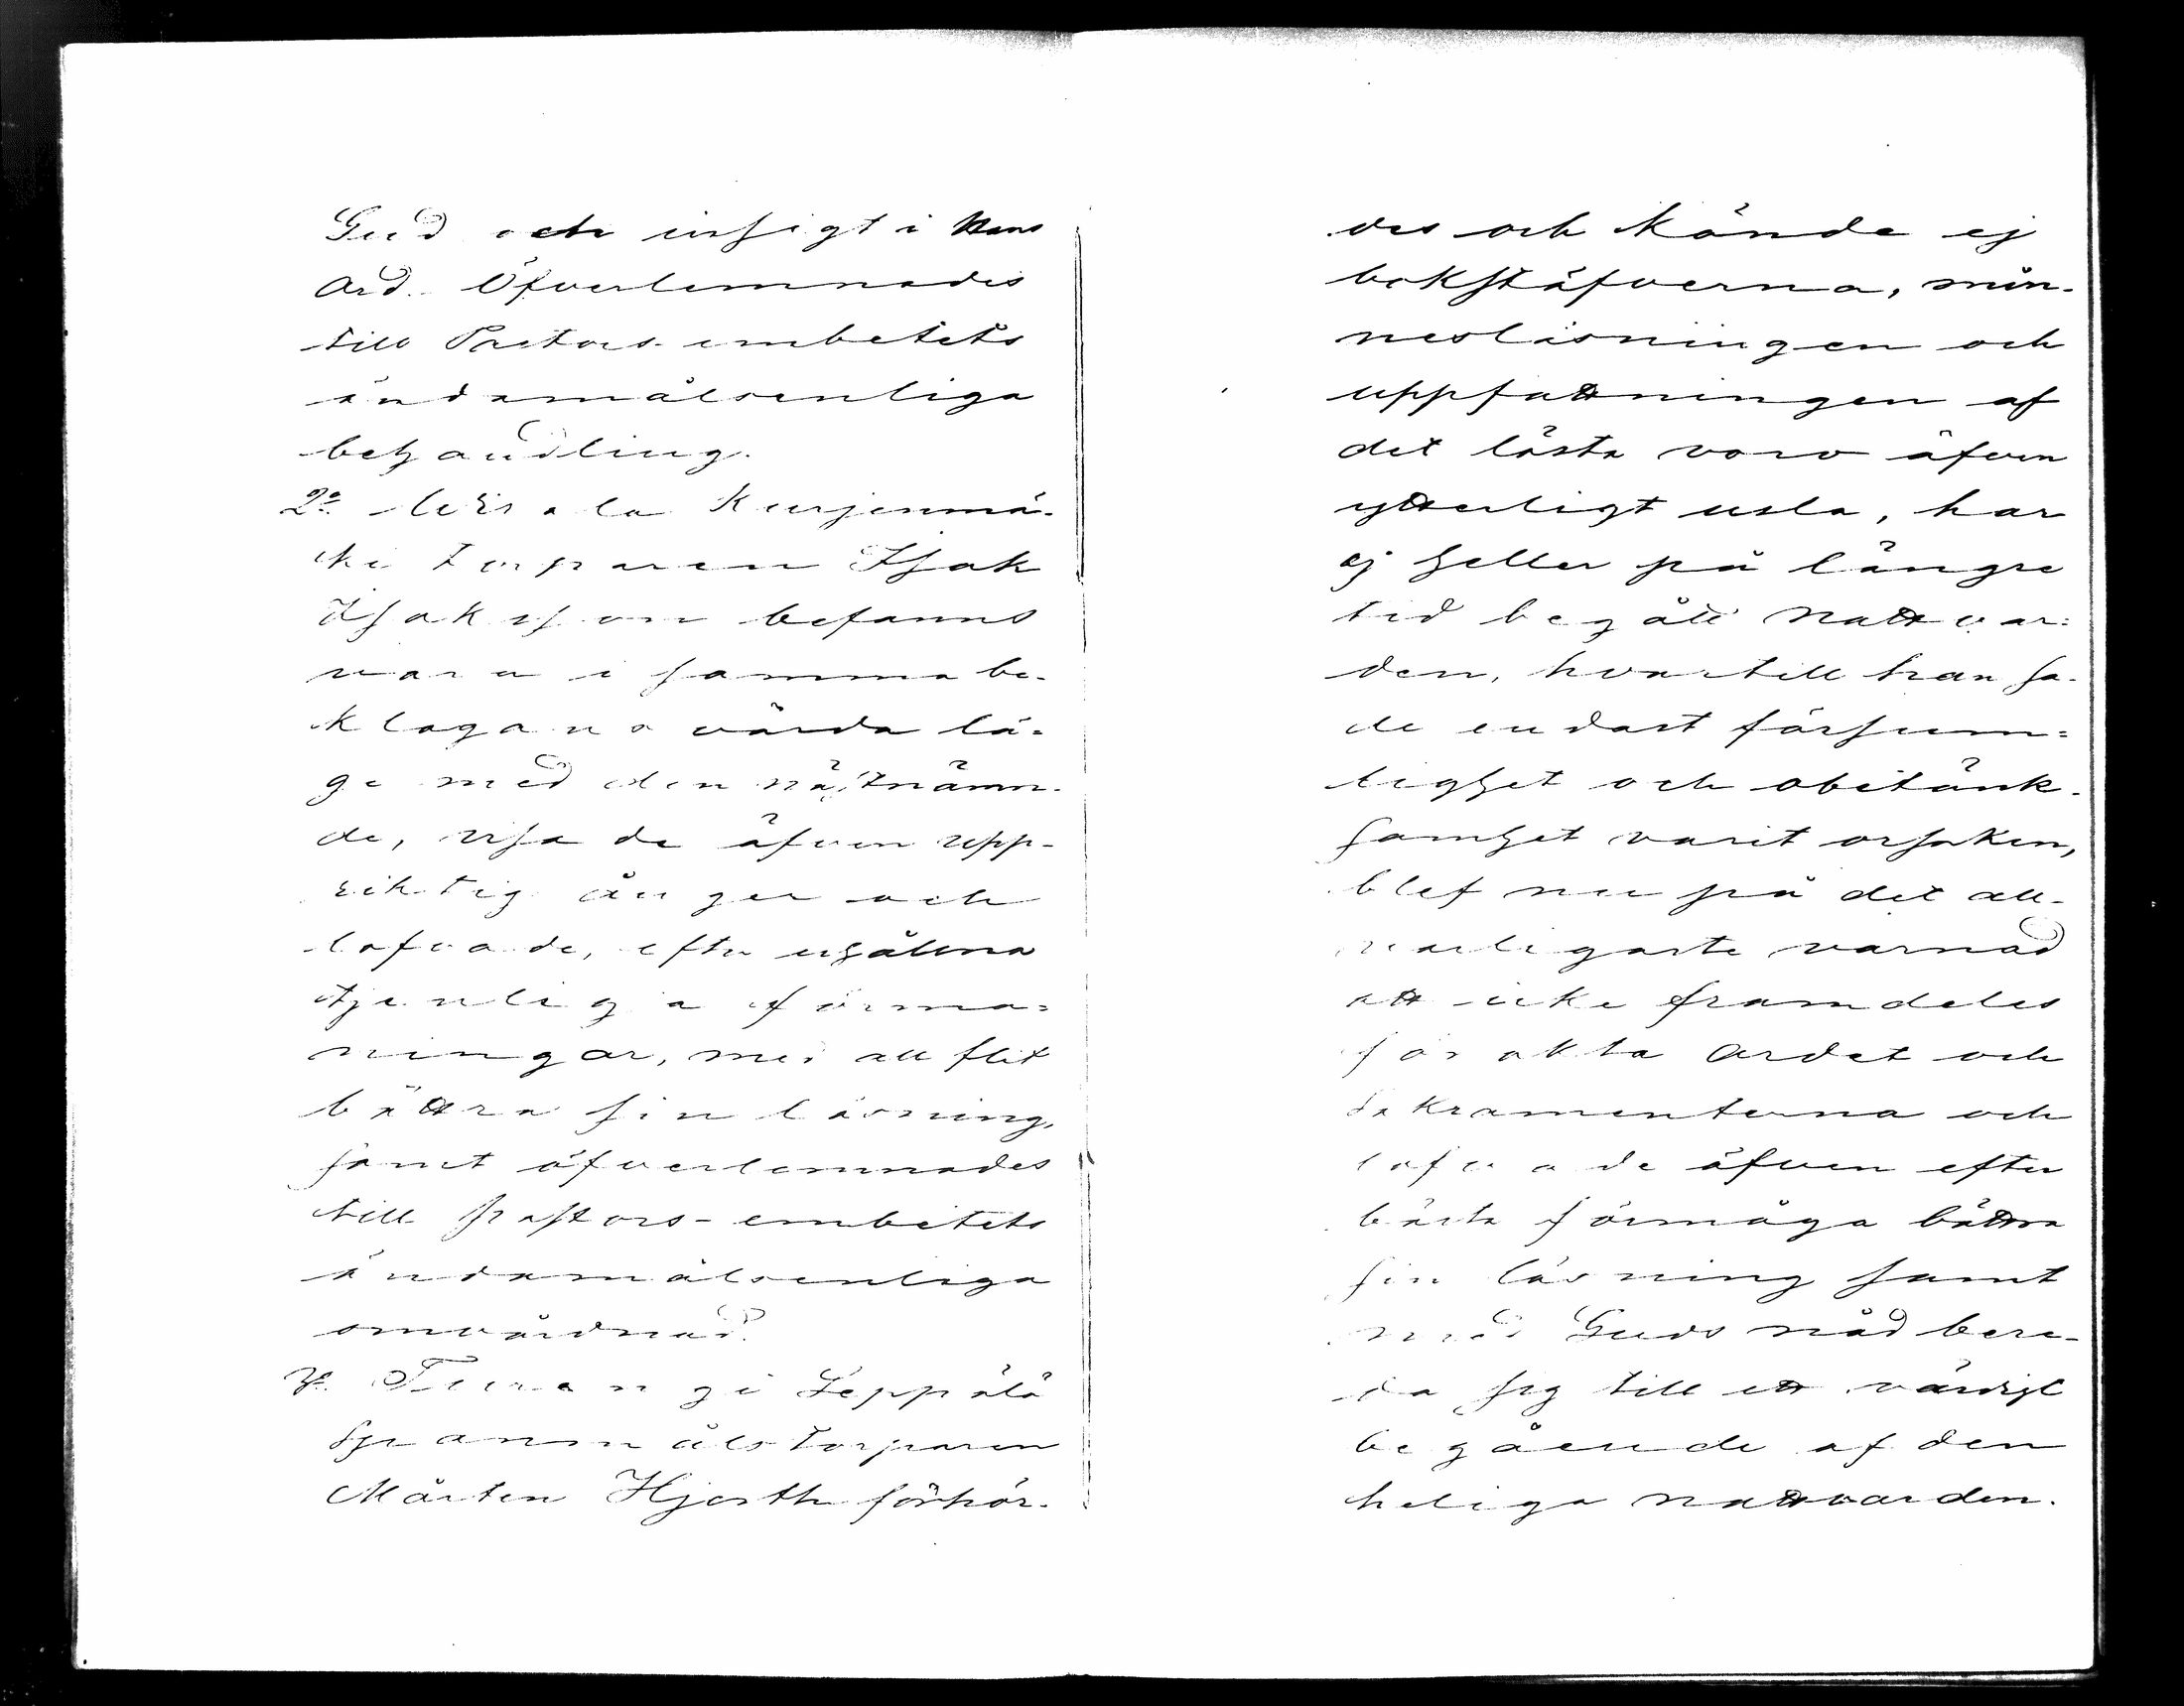 Gud och insigt i Hans
ord. Öfverlemnades
till Pastors-embetets
ändamålsenliga
behandling.
2o Kurjenmä-
ki torparen Isak
Isaksson befanns
vara i samma be-
klagansvärda lä-
ge med den nästnämn-
de, visade äfven upp-
riktig ånger och
lofvade, efter erhållna
tjenliga förma-
ningar, med all flit
bättra sin läsning,
samt öfverlemnades
till pastors-embetets
ändamålsenliga
omvårdnad.
3o Leppälä
Spannmålstorparen
Mårten Hjorth förhör-
des och kände ej
bokstäfverna, min-
nesläsningen och
uppfattningen af
det lästa voro äfven
ytterligt usla, har
ej heller på längre
tid begått nattvar-
den, hvartill han sa-
de endast försum-
lighet och obetänk-
samhet varit orsaken,
blef nu på det all-
varligaste varnad
att icke framdeles
förakta ordet och
Sakramenterna och
lofvade äfven efter
bästa förmåga bättra
sin läsning samt
med Guds nåd bere-
da sig till ett värdigt
begående af den
heliga nattvarden.